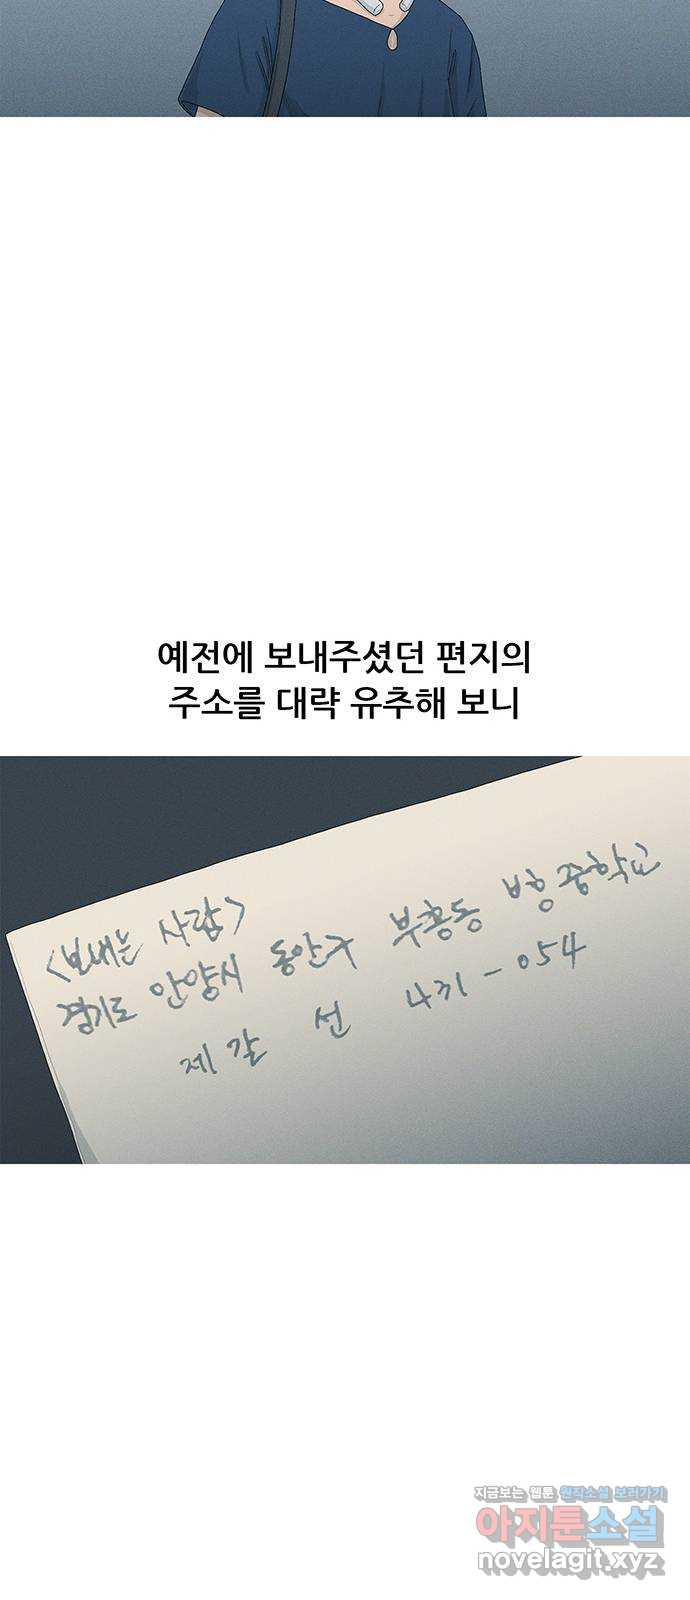 예전에 보내주셨던 편지의
주소를 대략 유추해 보니
<보내는 사람>
경기도 안양시 동안구 부흥동 범중학교
제갈 선 431-054
지금보는 웹툰 원작소설 보러가기
아지툰소설
novelagit.xyz